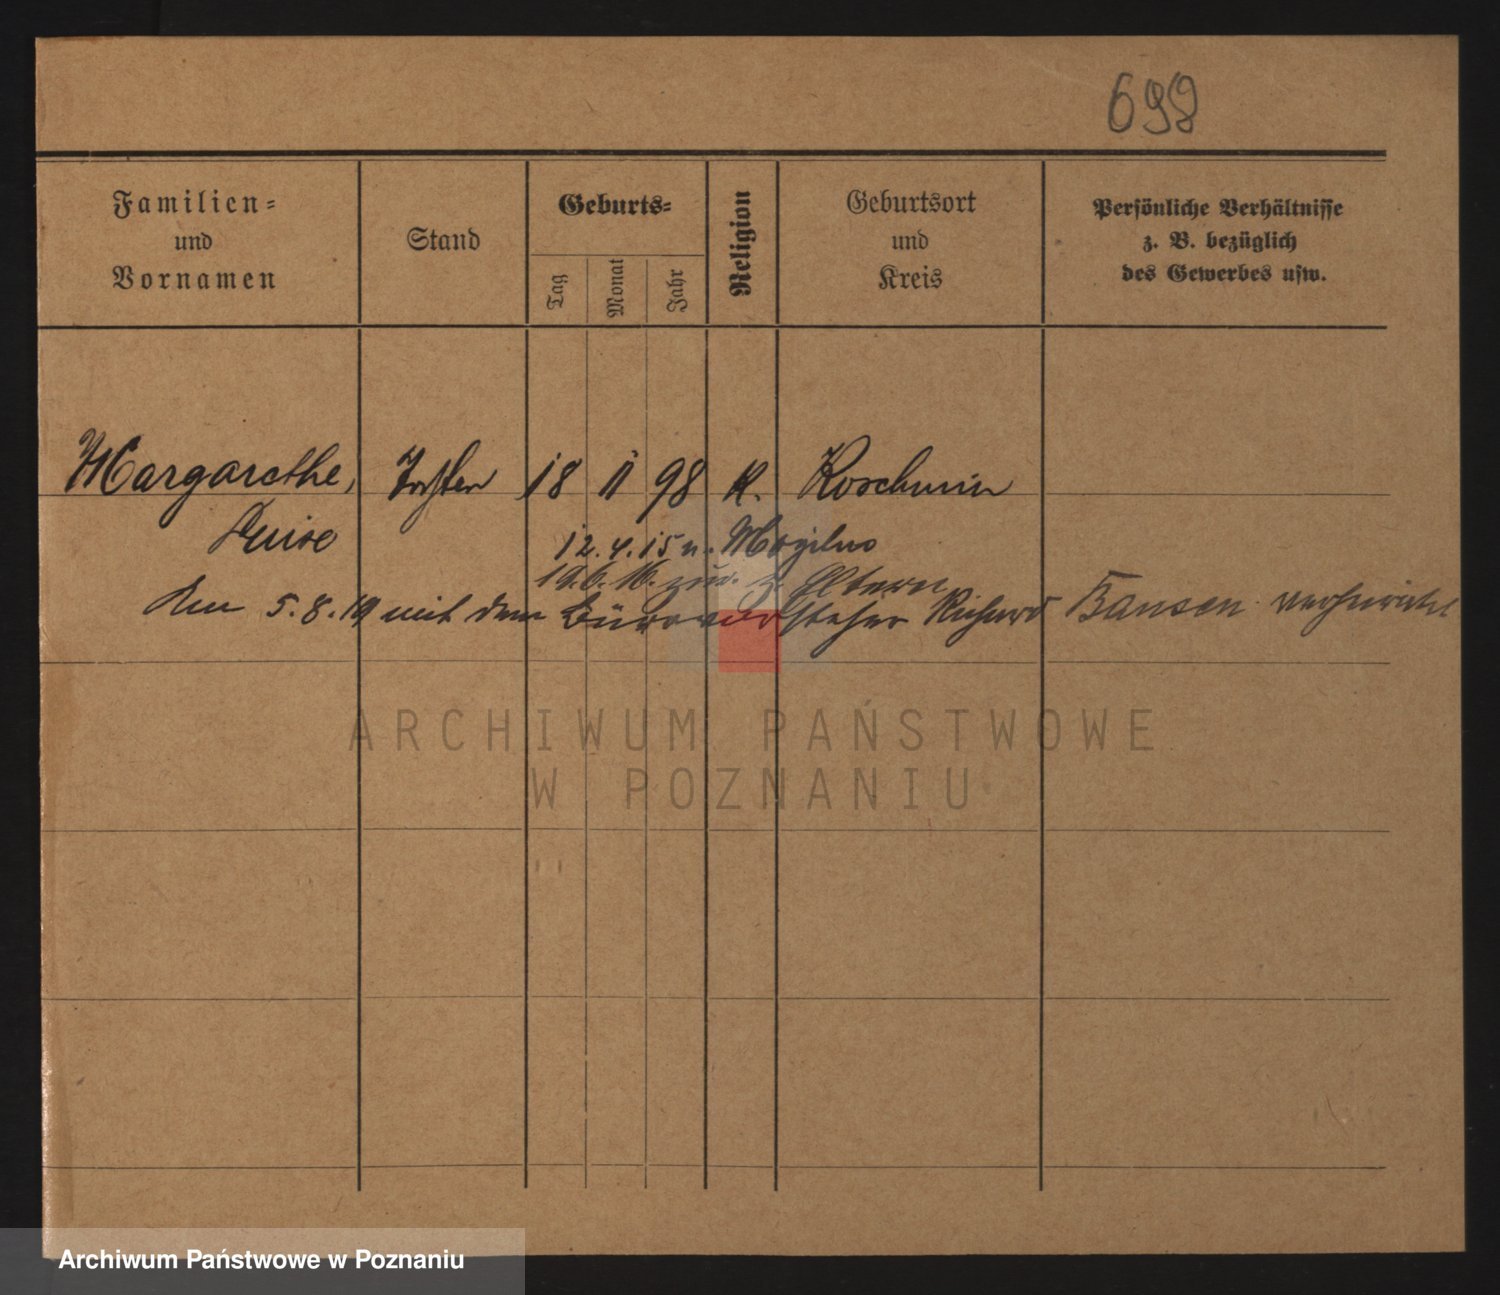 698
Familien=
und
Vornamen
Stand
Geburts=
Tag
Monat
Jahr
Religion
Geburtsort
und
Kreis
Persönliche Verhältnisse
z. B. bezüglich
des Gewerbes usw.
Margarethe, Tochter 18 11 98 K. Koschmin
Luise
12. 4. 15 n. Mogilno
19.6.16. zur. z. Eltern
Am 5.8.19 mit dem Bürovorsteher Richard Bansen verheiratet
ARCHIWUM PAŃSTWOWE
W POZNANIU
Archiwum Państwowe w Poznaniu